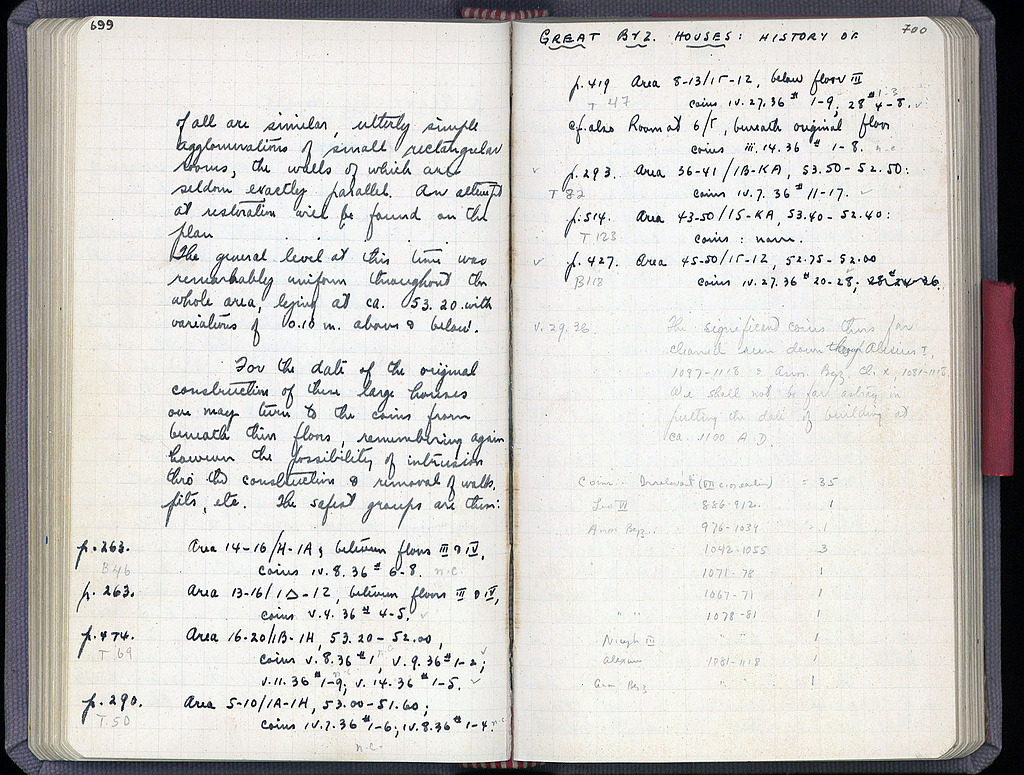 699
of all are similar, utterly simple
agglomerations of small rectangular
rooms, the walls of which are
seldom exactly parallel. An attempt
at restoration will be found on the
plan.
The general level at this time was
remarkably uniform throughout the
whole area, lying at ca. 53.20 with
variations of 0.10 m. above & below.
For the date of the original
construction of these large houses
one may turn to the coins from
beneath their floors, remembering again
however the possibility of intrusion
thro the construction & removal of walls,
pits, etc. The safest groups are these:
p. 263. Area 14-16/H-1A, between floors III & IV,
B46 coins IV.8.36 # 6-8. n.c.
p. 263. Area 13-16/1Δ-12, between floors III & IV,
coins V.4.36 # 4-5. ✓
p. 474. Area 16-20/1B-1H, 53.20-52.00,
T 69 coins V.8.36 #1, n.c. V.9.36 #1-2; ✓
V.11.36 #1-9; n.c. V.14.36 #1-5. ✓
p. 290. Area 5-10/1A-1H, 53.00-51.60;
T.50 coins IV.7.36 #1-6; IV.8.36 #1-4. n.c.
n.c.
700
GREAT BYZ. HOUSES: HISTORY OF
p. 419 Area 8-13/15-12, below floor III
T 47 coins IV.27.36 # 1-9; 28 # 4-8. ✓
1-3
cf. also Room at 6/5, beneath original floor
coins iii.14.36 # 1-8. n.c
✓ p. 293. Area 36-41/1B-KA, 53.50-52.50:
T 82 coins IV.7.36 # 11-17. ✓
p. 514. Area 43-50/15-KA, 53.40-52.40:
T 123 coins: none.
✓ p. 427. Area 45-50/15-12, 52.75-52.00
B118 coins IV.27.36 # 20-28; 28 # 24-26.
V.29.36. The significant coins thus far
cleaned run down through Alexius I,
1097-1118 & Anon. Byz. Cl. X, 1081-1118.
We shall not be far astray in
putting the date of building at
ca. 1100 A.D.
Coins: Irrelevant = 35
Leo VI 886-912. 1
Anon Byz.: 976-1034 1
1042-1055 3
1071-78 1
1067-71 1
" " 1078-81 1
Niceph III " " 1
Alexius 1081-1118 1
Anon Byz " " 1